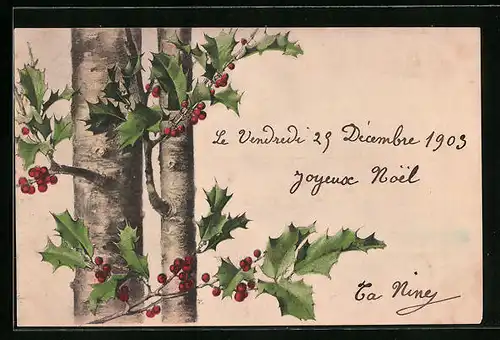 Le Vendredi 25 Décembre 1903
Joyeux Noël
Ta Niney